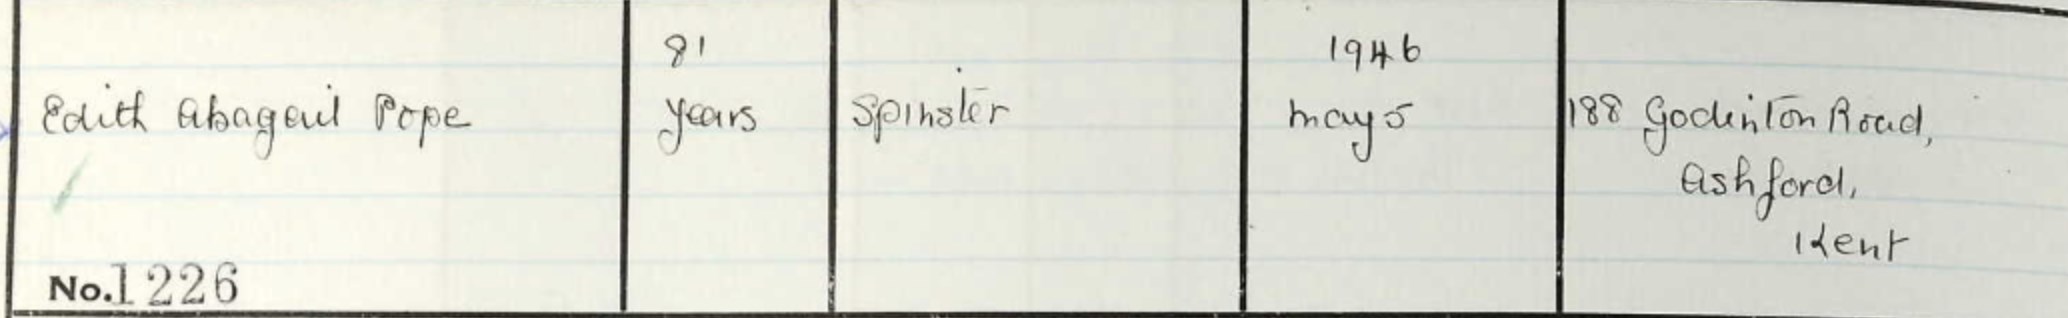 Edith Abagail Pope
81
years
Spinster
1946
May 5
188 Godinton Road,
Ashford,
Kent
No.1226